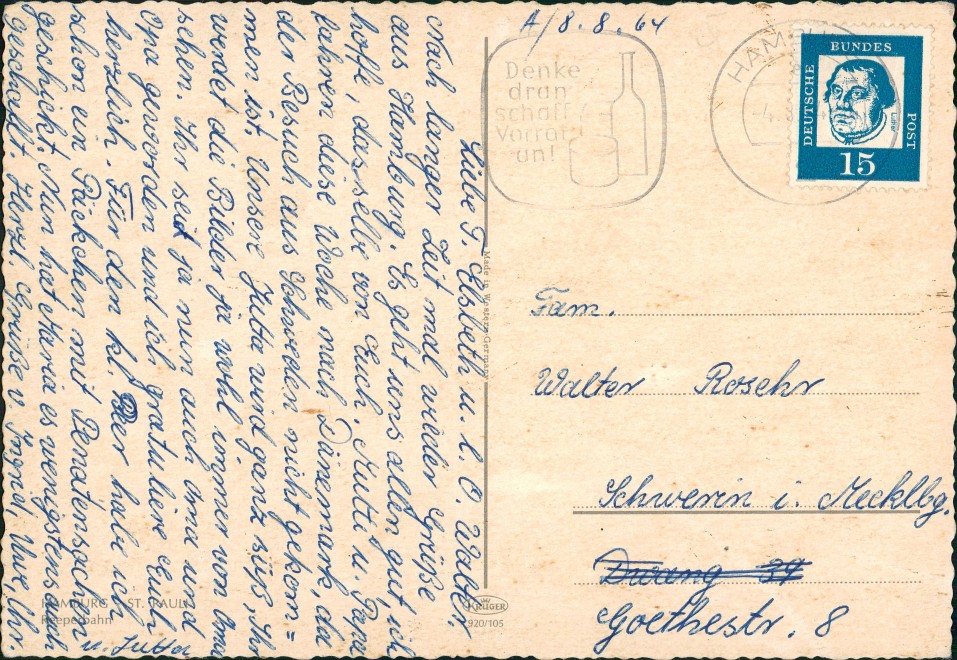 A/8.8.64
Denke
dran
schaff
Vorrat
an!
HAMBURG
-4.8.
DEUTSCHE
BUNDES
POST
Luther
15
Liebe T. Elsbeth u. l. O. Walter,
nach langer Zeit mal wieder Grüße
aus Hamburg. Es geht uns allen gut, ich
hoffe, dasselbe von Euch. Mutti u. Papa
fahren diese Woche nach Dänemark, da
der Besuch aus Schweden nicht gekom=
men ist. Unsere Jutta wird ganz süß, Ihr
werdet die Bilder ja wohl immer von Oma
sehen. Ihr seid ja nun auch Oma und
Opa geworden und ich gratuliere Euch
herzlich. Für den kl. Peer habe ich
schon ein Päckchen mit Penatensachen
geschickt. Nun hat Maria es wenigstens
geschafft. Herzl. Grüße v. Uwe, Ihr.
u. Jutta
Made in Western-Germany
Fam.
Walter Rosehr
Schwerin i. Mecklbg.
Dwang 39
Goethestr. 8
HAMBURG ST. PAULI
Reeperbahn
KRÜGER
920/105